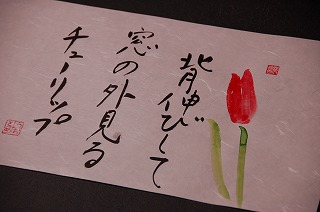 背伸びして
窓の外見る
チューリップ